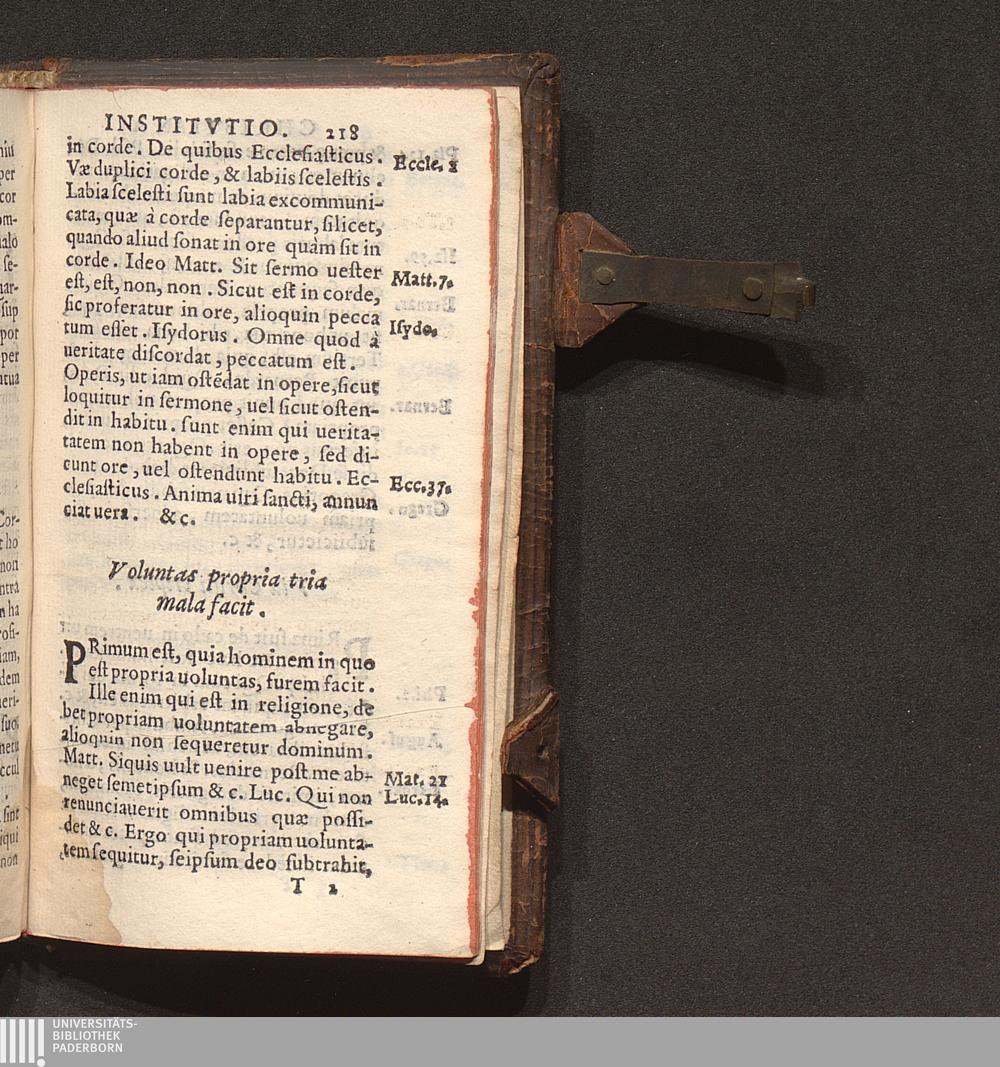 INSTITVTIO. 218
in corde. De quibus Ecclesiasticus. Eccle. 2
Væ duplici corde, & labiis scelestis.
Labia scelesti sunt labia excommuni-
cata, quæ à corde separantur, silicet,
quando aliud sonat in ore quàm sit in
corde. Ideo Matt. Sit sermo uester Matt. 7.
est, est, non, non. Sicut est in corde,
sic proferatur in ore, alioquin pecca
tum esset. Isydorus. Omne quod à Isydo.
ueritate discordat, peccatum est.
Operis, ut iam ostẽdat in opere, sicut
loquitur in sermone, uel sicut osten-
dit in habitu. sunt enim qui uerita-
tatem non habent in opere, sed di-
cunt ore, uel ostendunt habitu. Ec- Ecc. 37.
clesiasticus. Anima uiri sancti, annun
ciat uera. &c.
Voluntas propria tria
mala facit.
PRimum est, quia hominem in quo
est propria uoluntas, furem facit.
Ille enim qui est in religione, de
bet propriam uoluntatem abnegare,
alioquin non sequeretur dominum.
Matt. Siquis uult uenire post me ab- Mat. 21
neget semetipsum & c. Luc. Qui non Luc. 14.
renunciauerit omnibus quæ possi-
det & c. Ergo qui propriam uolunta-
tem sequitur, seipsum deo subtrahit,
T 2
UNIVERSITÄTS-
BIBLIOTHEK
PADERBORN